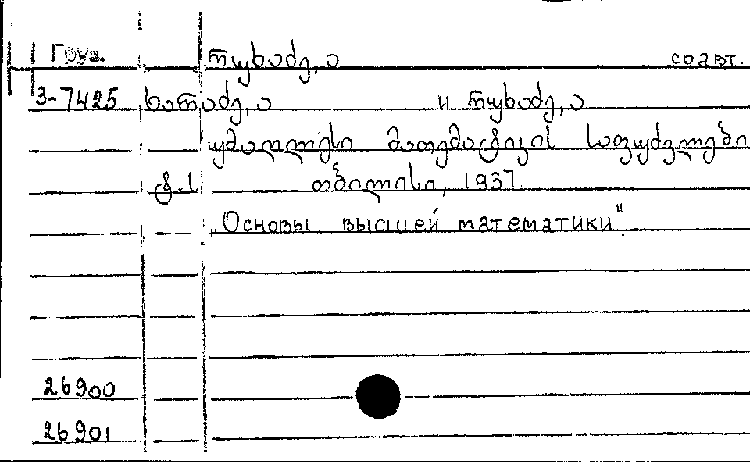 Груз. რუხაძე, ა соавт.
3-7425 ხარაძე, ა и რუხაძე, ა
უმაღლესი მათემატიკის საფუძვლები
ტ.I თბილისი, 1937.
„Основы высшей математики"
26900
26901